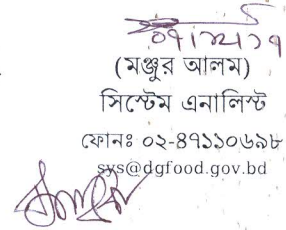 (মঞ্জুর আলম)
সিস্টেম এনালিস্ট
ফোনঃ ০২-৪৭১১০৬৯৮
sys@dgfood.gov.bd